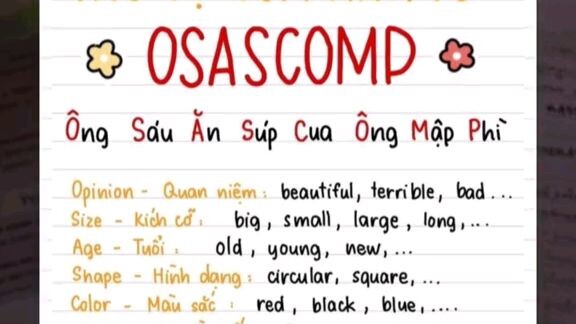 OSASCOMP
Ông Sáu Ăn Súp Cua Ông Mập Phì
Opinion - Quan niệm : beautiful, terrible, bad...
Size - Kích cỡ : big, small, large, long,...
Age - Tuổi : old, young, new,...
Shape - Hình dạng : circular, square,...
Color - Màu sắc : red, black, blue,....